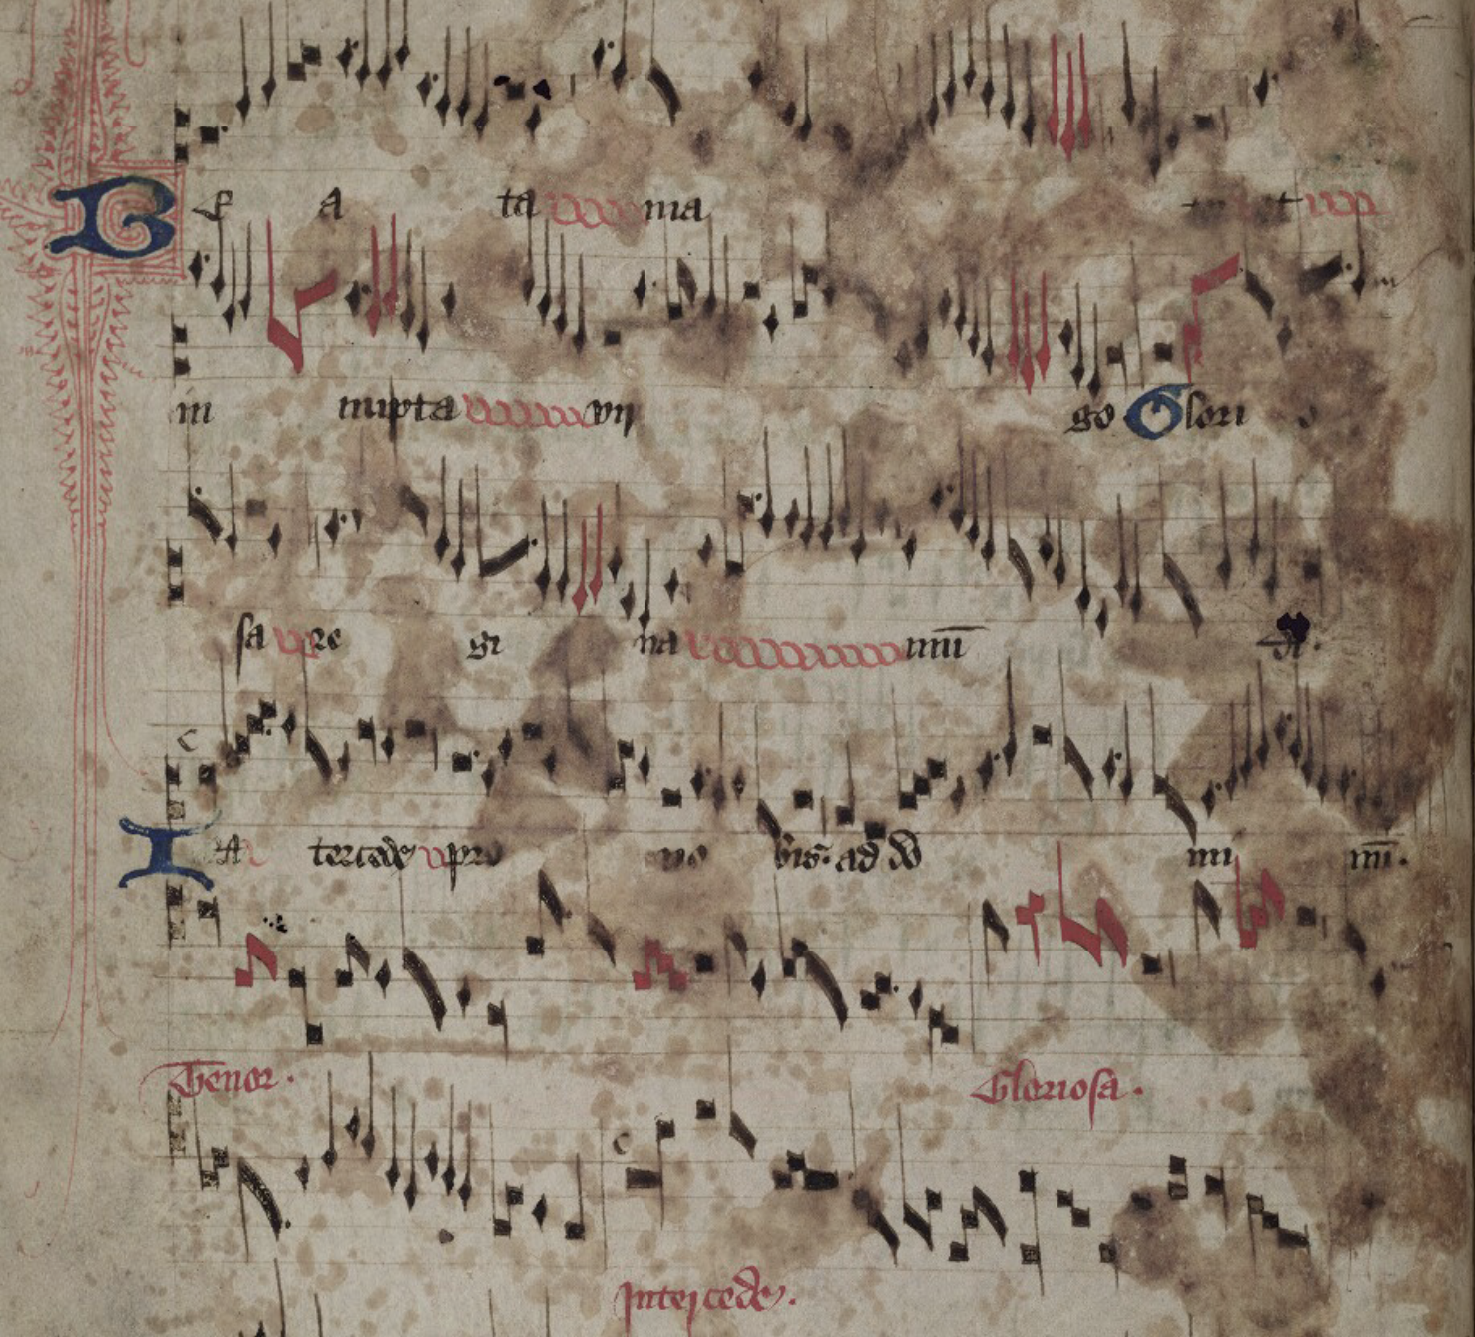 Be a ta ma
in nupta vir go Glori
sa re gi na mū di.
In tercede pro no bis. ad do mi nū.
Tenor. Gloriosa.
Intercede.